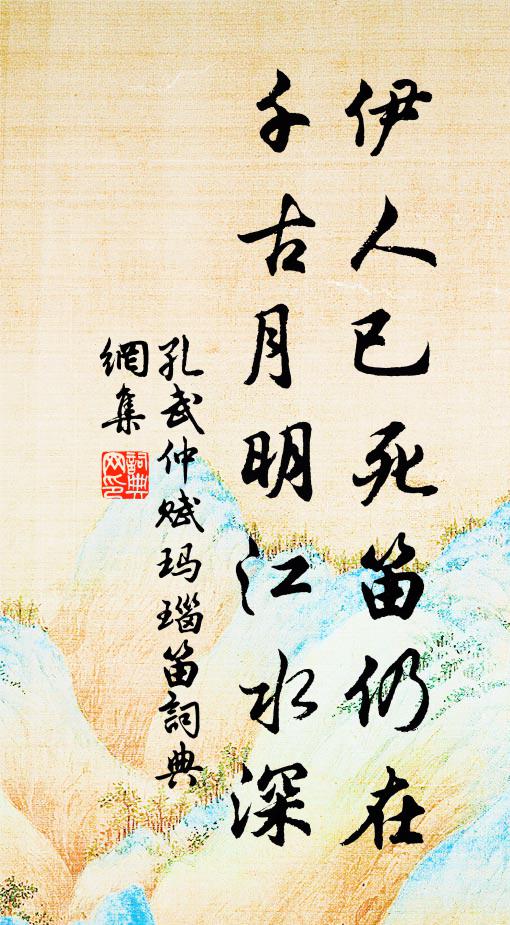 伊人已死笛仍在
千古月明江水深
孔武仲赋玛瑙笛詞典
網集
詞典網印